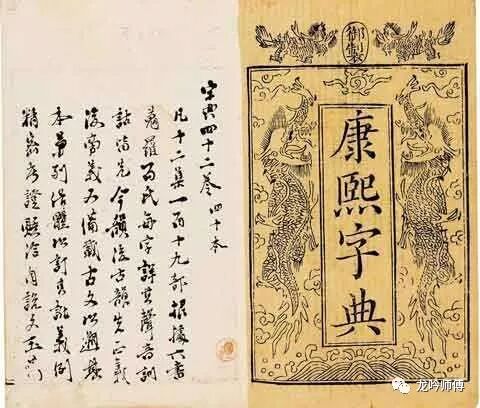 御製
康熙字典
字典四十二卷 四十本
凡十二集一百十九部根據六書
蒐羅百氏每字詳其聲音訓
詁皆先今韻後古韻先正義
後旁義又備載古文以遡其
本兼列俗體以訂其訛義例
精密考證賅洽自說文玉
龙吟师傅